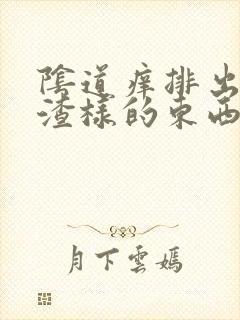 陰道痒排出
渣樣的東西
月下雲嫣